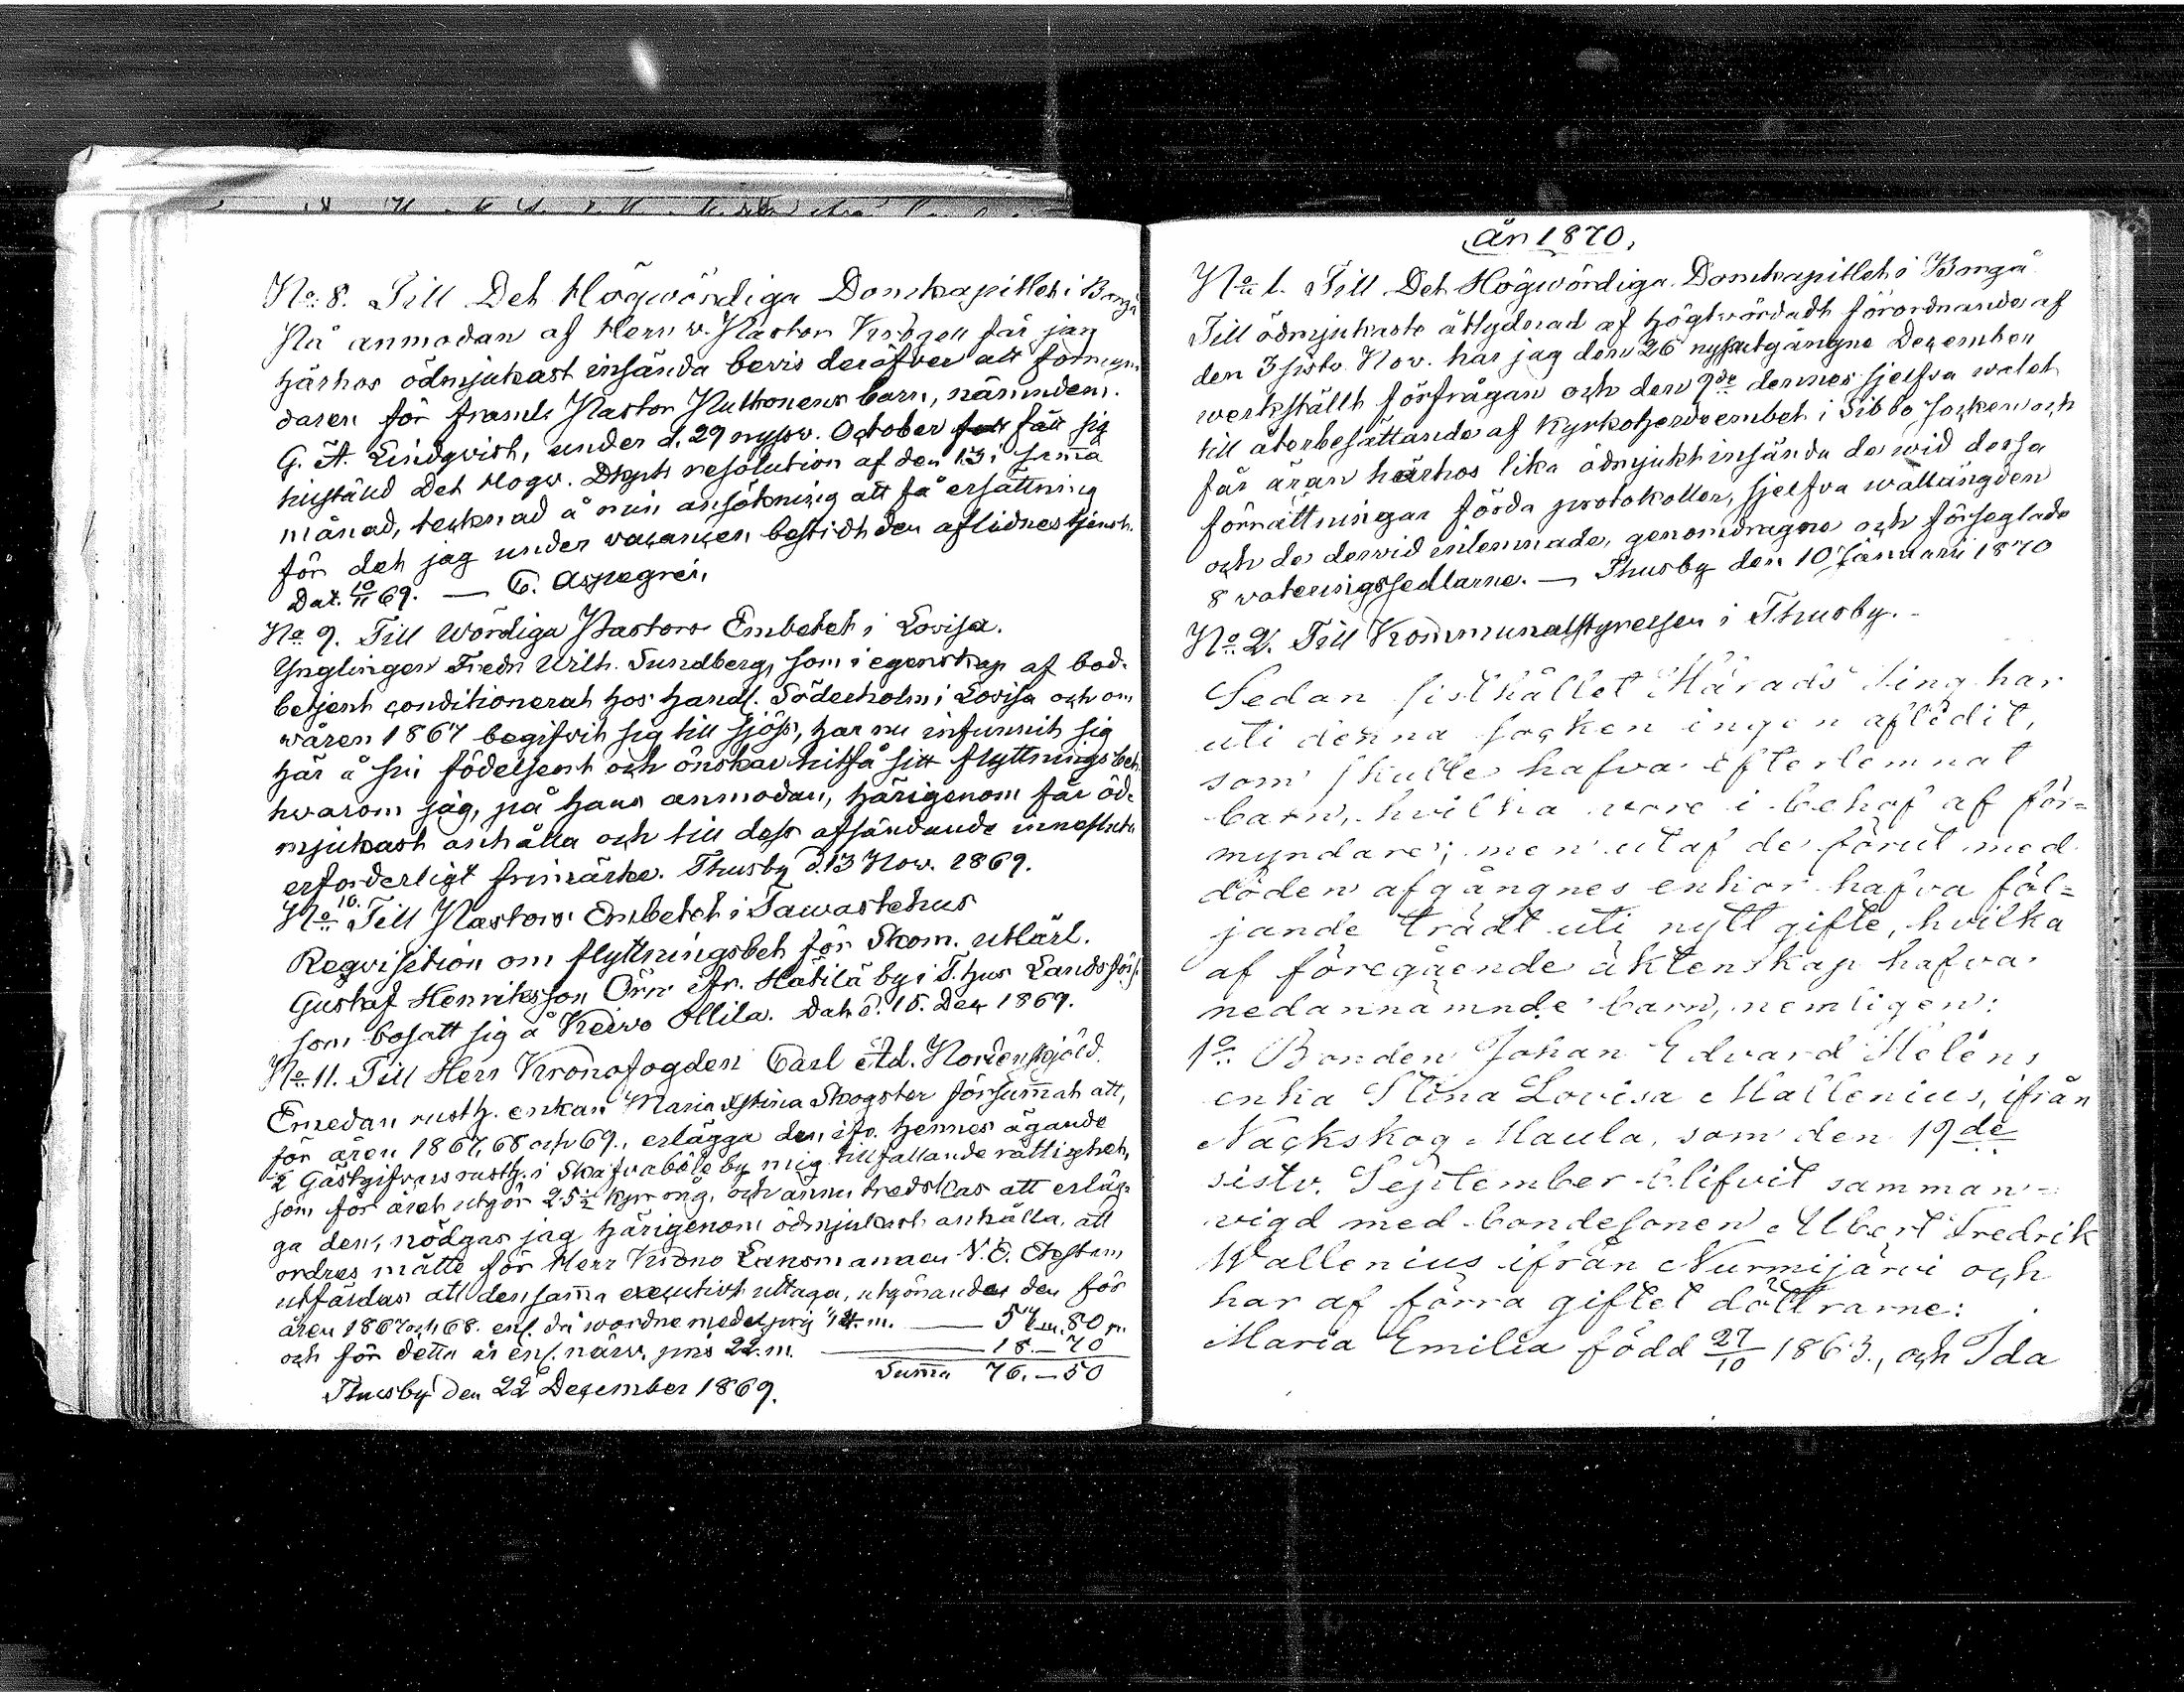 No 8. Till Det Högwördiga Domkapitlet i Borgå
På anmodan af Herr v. Pastor Krögell får jag
härhos ödmjukast insända bevis deröfver att förmyn
daren för framl. Pastor Puttonens barn, nämndem.
G. A. Lindqvist, under d. 29 nyssv. October fått sig
tillställd Det Högw. Dkpts resolution af den 13 i samma
månad, tecknad å min ansökning att få ersättning
för det jag under vacancen bestridt den aflidnes tjenst.
Dat. 10/11 69. — C. Aspegren.
No 9. Till Wördiga Pastors Embetet i Lovisa.
Ynglingen Fredr Wilh. Sundberg, som i egenskap af bod-
betjent conditionerat hos handl. Söderholm i Lovisa och om
våren 1867 begifvit sig till sjöss, har nu infunnit sig
här å sin födelseort och önskar hitfå sitt flyttningsbet.
hwarom jag, på hans anmodan, härigenom får öd-
mjukast anhålla och till dess afsändande innesluta
erforderligt frimärke. Thusby d. 13 Nov. 1869.
No 10. Till Pastors Embetet i Tawastehus
Reqvisition om flyttningsbet för Skom. utlärl.
Gustaf Henriksson Örn fr. Hätilä by i T.hus Landsförs.
som bosatt sig å Keivo Ollila. Dat d. 15. Dec 1869.
No 11. Till Herr Kronofogden Carl Ad. Nordenskjöld.
Emedan rusth. enkan Maria Stina Skogster försummat att,
för åren 1867, 68 och 69., erlägga den ifr. hennes ägande
1/2 Gästgifvars rusth. i Skafvaböle by mig tillfallande rättighet,
som för året utgör 25 1/2 kpr råg, och ännu tredskas att erläg-
ga den, nödgas jag härigenom ödmjukast anhålla, att
ordres måtte för Herr Krono Länsmannen N. E.
utfärdas att densamma executivt uttaga, utgörandes den för
åren 1867 och 68. enl. då wordne medelpris m. — 57 m. 80 p.
och för detta år enl. närv. pris 22. m. — 18. — 70
Summa 76. — 50
Thusby den 22 December 1869.
År 1870,
No 1. Till Det Högwördiga Domkapitlet i Borgå
Till ödmjukaste åtlydnad af högtwördadt förordnande af
den 3 sistv. Nov. har jag den 26 nyssutgångne December
werkställt förfrågan och den 9de dennes sjelfva walet
till återbesättande af Kyrkoherdeembet i Sibbo socken och
får äran härhos lika ödmjukt insända de wid dessa
förrättningar förda protokoller, sjelfva wallängden
och de dervid inlemnade, genomdragne och förseglade
8 voteringssedlarne. — Thusby den 10 Januari 1870
No 2. Till Kommunalstyrelsen i Thusby.
Sedan sisthållet Härads Ting har
uti denna socken ingen aflidit,
som skulle hafva efterlemnat
barn, hvilka vore i behof af för=
myndare; men utaf de förut med
döden afgångnes enkor hafva föl=
jande trädt uti nytt gifte, hvilka
af föregående äktenskap hafva
nedannämnde barn, nemligen:
1o Bonden Johan Edvard Helens
enka Stina Lovisa Mattenius, ifrån
Näckskog Maula, som den 19de
sistv. September blifvit samman=
vigd med bondesonen Albert Fredrik
Wallenius ifrån Nurmijärvi och
har af förra giftet döttrarne:
Maria Emilia född 27/10 1863., och Ida